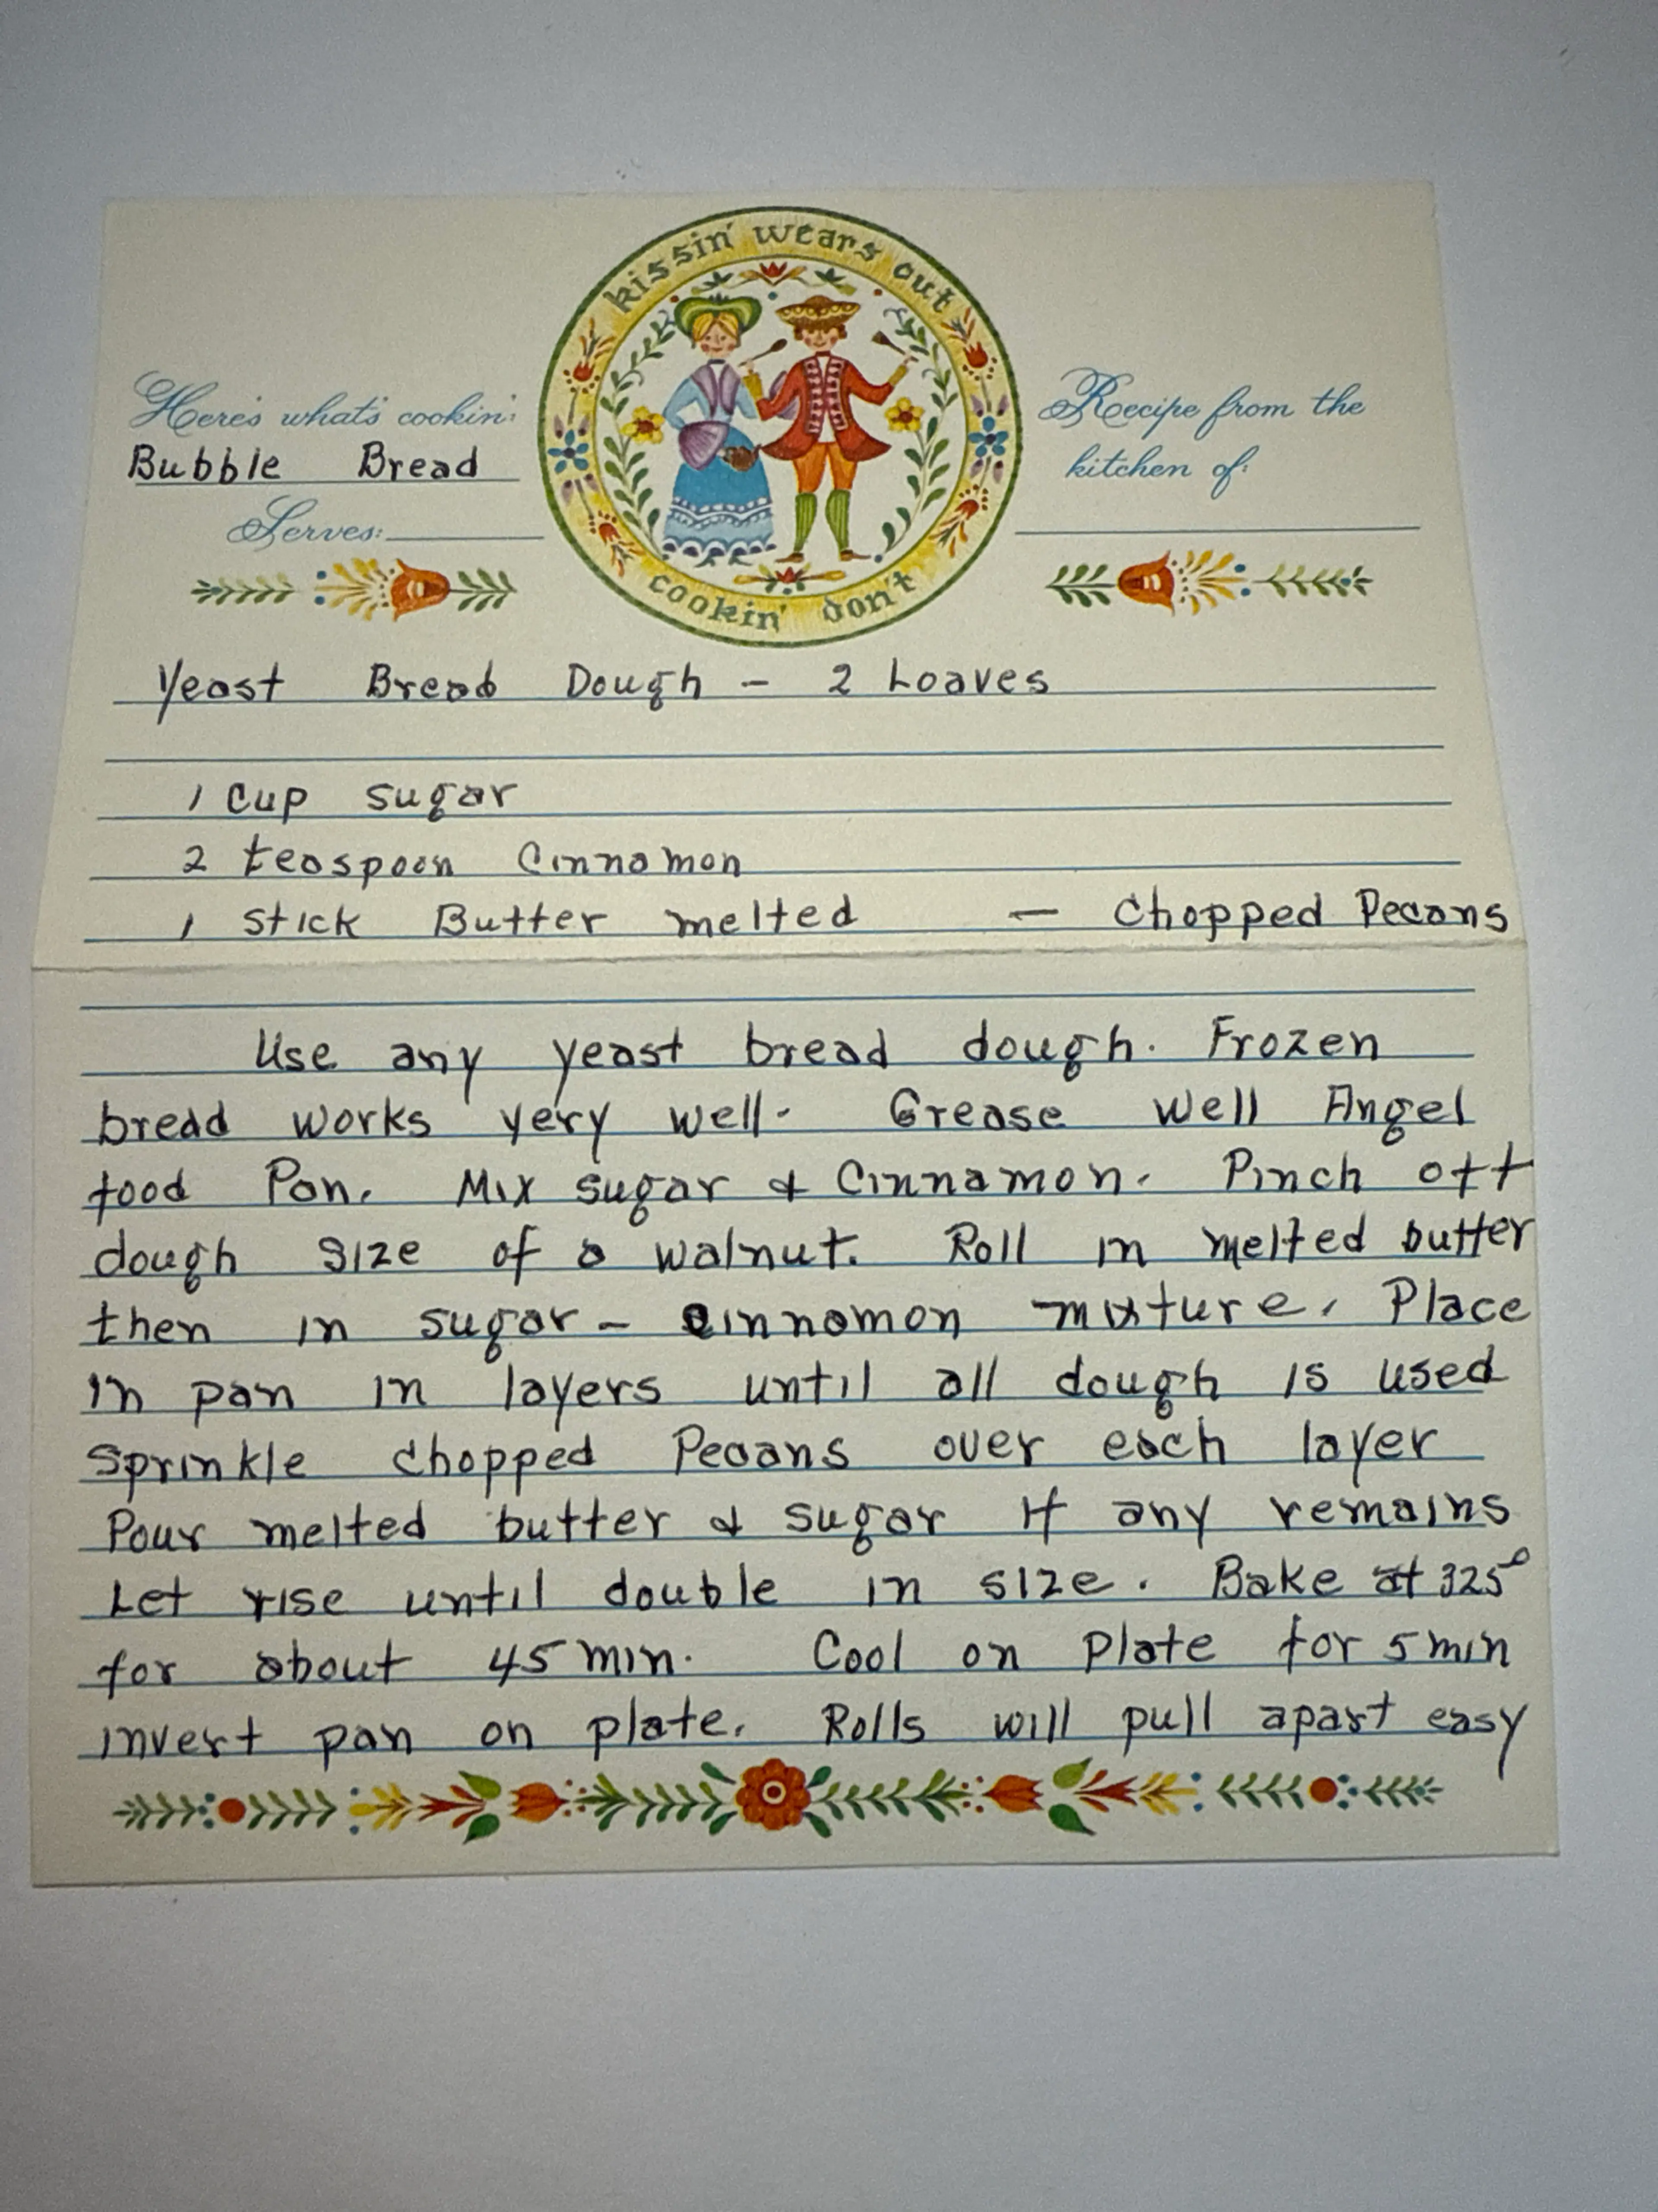 kissin' wears out
Here's what's cookin':
Bubble Bread
Serves:
Recipe from the
kitchen of:
cookin' don't
Yeast Bread Dough - 2 Loaves
1 Cup sugar
2 teaspoon Cinnamon
1 stick Butter melted — Chopped Pecans
Use any yeast bread dough. Frozen
bread works very well. Grease well Angel
food Pan. Mix sugar & Cinnamon. Pinch off
dough size of a walnut. Roll in melted butter
then in sugar - cinnamon mixture. Place
in pan in layers until all dough is used
Sprinkle chopped Pecans over each layer
Pour melted butter & sugar if any remains
Let rise until double in size. Bake at 325°
for about 45 min. Cool on plate for 5 min
invert pan on plate. Rolls will pull apart easy